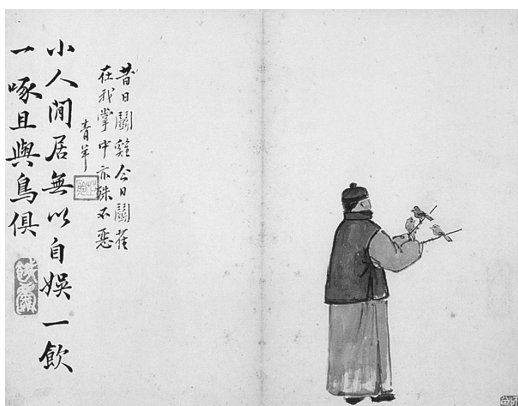 昔日鬭雞今日鬭雀
在我掌中亦殊不惡
青羊
小人閒居無以自娛一飲
一啄且與鳥俱